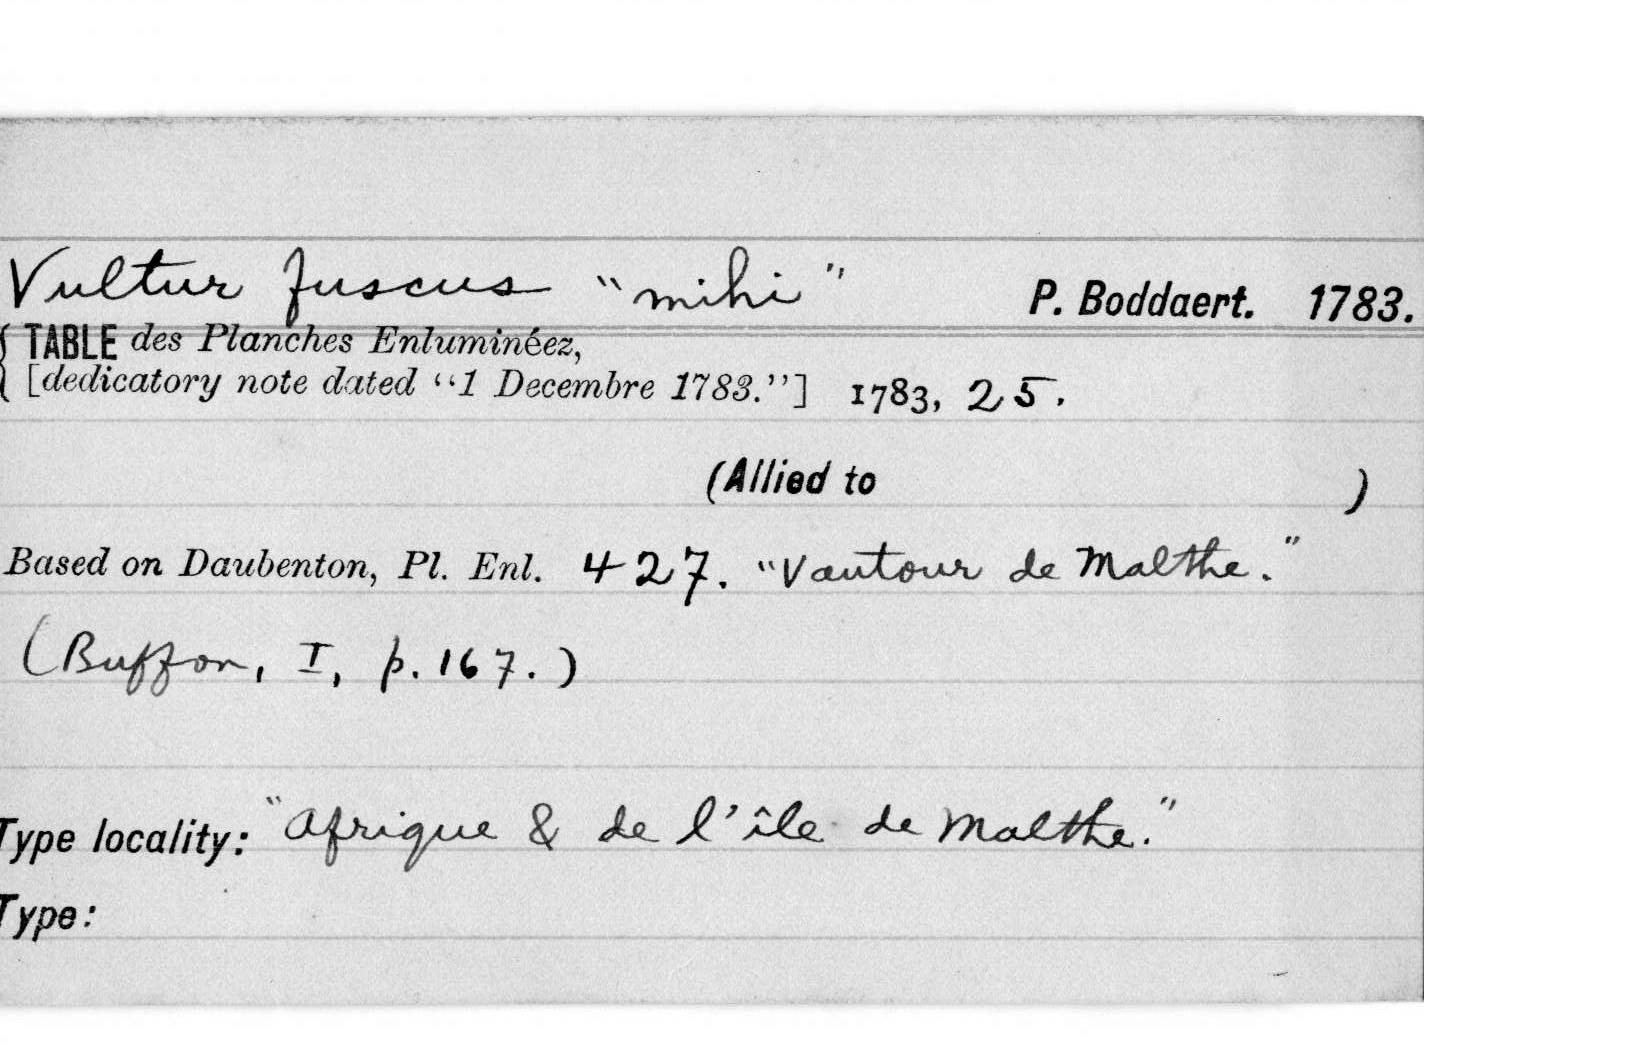 Vultur fuscus "mihi" P. Boddaert. 1783.
{ TABLE des Planches Enluminéez,
[dedicatory note dated "1 Decembre 1783."] 1783, 25.
(Allied to )
Based on Daubenton, Pl. Enl. 427. "Vautour de Malthe."
(Buffon, I, p. 167.)
Type locality: "Afrique & de l'île de Malthe."
Type: